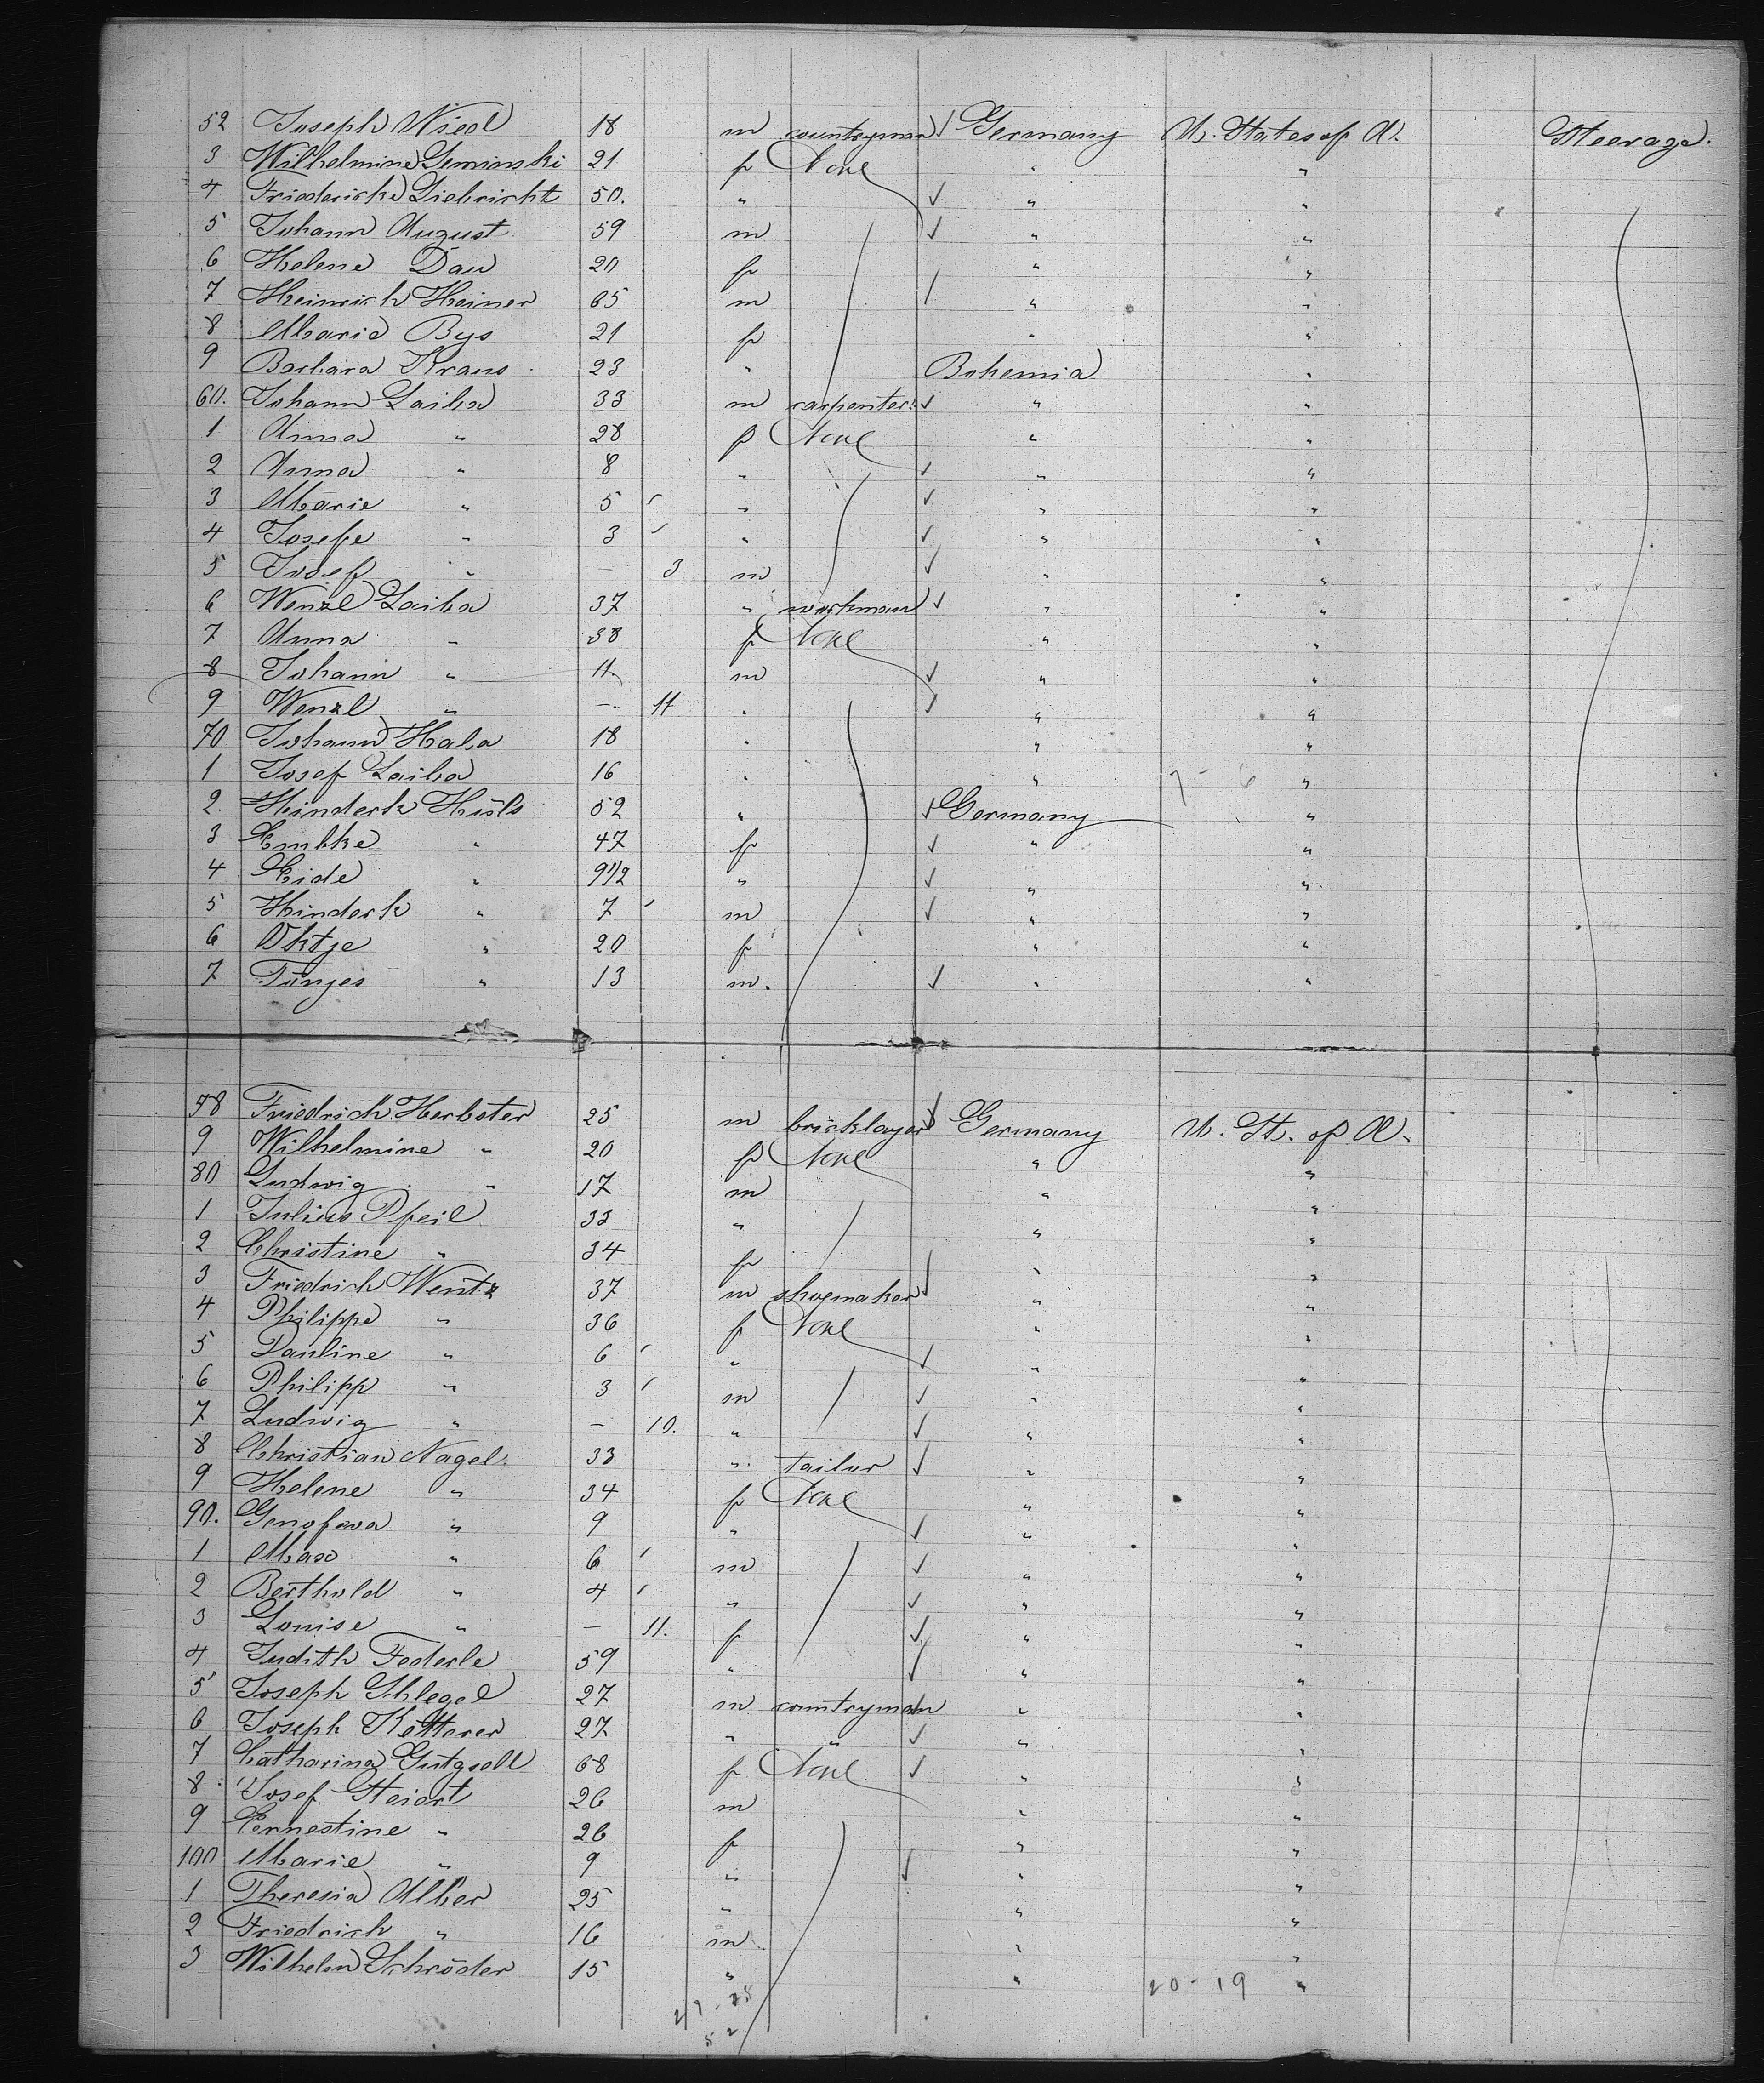 52 Joseph Wiedl 18 m countryman ✓ Germany U. States of A. Steerage.
3 Wilhelmine Seminski 21 f None " "
4 Friederike Liebricht 50. " ✓ " "
5 Johann August 59 m ✓ " "
6 Helene Dau 20 f " "
7 Heinrich Heiner 65 m / " "
8 Marie Bys 21 f " "
9 Barbara Kraus 23 " Bohemia "
60. Johann Laiba 33 m carpenter ✓ " "
1 Anna " 28 f None " "
2 Anna " 8 " ✓ " "
3 Marie " 5 " ✓ " "
4 Josefe " 3 " ✓ " "
5 Josef " — 3 m ✓ " "
6 Wenzl Laiba 37 " workman ✓ " "
7 Anna " 38 f None " "
8 Johann " 11. m ✓ " "
9 Wenzl " — 11 " ✓ " "
70 Johann Haba 18 " " "
1 Josef Laiba 16 " " 7 - 6 "
2 Hinderk Hüls 52 " ✓ Germany "
3 Emkke " 47 f ✓ " "
4 Eide " 9 1/2 " ✓ " "
5 Hinderk " 7 m ✓ " "
6 Oktje " 20 f " "
7 Tönjes " 13 m. ✓ " "
78 Friedrich Herbster 25 m bricklayer ✓ Germany U. St. of A.
9 Wilhelmine " 20 f None " "
80 Ludwig " 17 m " "
1 Julius Pfeil 33 " " "
2 Christine " 34 f " "
3 Friedrich Wentz 37 m shoemaker ✓ " "
4 Philippe " 36 f None " "
5 Pauline " 6 " ✓ " "
6 Philipp " 3 m ✓ " "
7 Ludwig " — 10. " ✓ " "
8 Christian Nagel 33 " tailor ✓ " "
9 Helene " 34 f None " "
90. Genofava " 9 " ✓ " "
1 Max " 6 m ✓ " "
2 Berthold " 4 " ✓ " "
3 Louise " — 11. f ✓ " "
4 Judith Federle 59 " ✓ " "
5 Joseph Schlegel 27 m countryman " "
6 Joseph Ketterer 27 " " ✓ " "
7 Catharina Gutgsell 68 f None ✓ " "
8 Josef Steiert 26 m " "
9 Ernestine " 26 f " "
100 Marie " 9 " ✓ " "
1 Theresia Alber 25 " " "
2 Friedrich " 16 m " "
3 Wilhelm Schröder 15 " " 20 - 19 "
27 - 25
52